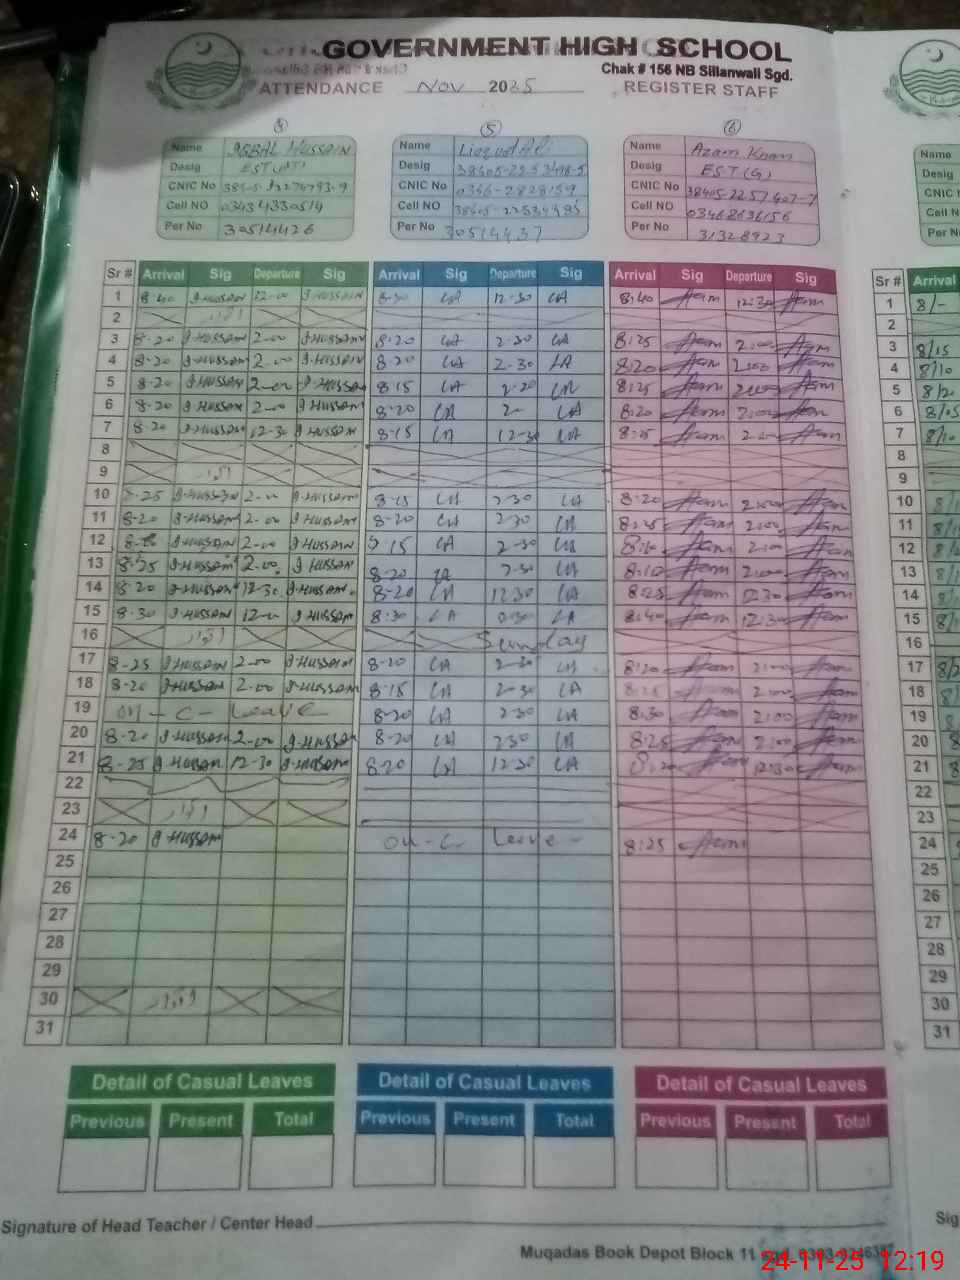 GOVERNMENT HIGH SCHOOL
Chak # 156 NB Sillanwali Sgd.
ATTENDANCE Nov 2025 REGISTER STAFF
5 6
Name IQBAL HUSSAIN Name Liaqud Ali Name Azam Khan
Desig EST Desig 38405-2253498-5 Desig EST (G)
CNIC No CNIC No 0346-2828159 CNIC No 38405-2257407-7
Cell NO 03434330514 Cell NO Cell NO 03468636156
Per No 30514426 Per No 30514437 Per No 31328923
Name
Desig
CNIC
Cell N
Per No
Sr # Arrival Sig Departure Sig Arrival Sig Departure Sig Arrival Sig Departure Sig Sr # Arrival
1 8-40 I Hussain 12-00 I Hussain 8-30 LA 12-30 LA 8:40 Azam 12:30 Azam 1 8/-
2 اتوار 2
3 8-20 I Hussain 2-00 I Hussain 8-20 LA 2-30 LA 8:25 Azam 2:00 Azam 3 8/15
4 8-20 I Hussain 2-00 I Hussain 8-20 LA 2-30 LA 8:20 Azam 2:00 Azam 4 8/10
5 8-20 I Hussain 2-00 I Hussain 8-15 LA 2-20 LA 8:25 Azam 2:00 Azam 5 8/20
6 8-20 I Hussain 2-00 I Hussain 8-20 LA 2- LA 8:20 Azam 2:00 Azam 6 8/05
7 8-20 I Hussain 12-30 I Hussain 8-15 LA 12-30 LA Azam Azam 7 8/10
8 8
9 اتوار 9
10 8-25 I Hussain 2-00 I Hussain 8-15 LA 2-30 LA 8:20 Azam 2:00 Azam 10
11 8-20 I Hussain 2-00 I Hussain 8-20 LA 2-30 LA 8:25 Azam 2:00 Azam 11
12 I Hussain 2-00 I Hussain 8-15 LA 2-30 LA Azam 2:00 Azam 12
13 8-25 I Hussain 2-00 I Hussain 8-20 LA 2-30 LA 8:10 Azam 2:00 Azam 13
14 8-20 I Hussain 12-30 I Hussain 8-20 LA 12-30 LA 8:25 Azam 12:30 Azam 14
15 8-30 I Hussain 12-00 I Hussain 8-30 LA LA 8:40 Azam 12:30 Azam 15
16 اتوار Sunday 16
17 8-25 I Hussain 2-00 I Hussain 8-20 LA 2-30 LA 8:20 Azam 2:00 Azam 17
18 8-20 I Hussain 2-00 I Hussain 8-15 LA 2-30 LA 8:25 Azam 2:00 Azam 18
19 on-C-Leave 8-20 LA 2-30 LA 8:30 Azam 2:00 Azam 19
20 8-20 I Hussain 2-00 I Hussain 8-20 LA 2-30 LA 8:25 Azam 2:00 Azam 20
21 8-25 I Hussain 12-30 I Hussain 8-20 LA 12-30 LA 8:20 Azam 12:30 Azam 21
22 22
23 اتوار 23
24 8-20 I Hussain on-C- Leave- 8:25 Azam 24
25 25
26 26
27 27
28 28
29 29
30 اتوار 30
31 31
Detail of Casual Leaves Detail of Casual Leaves Detail of Casual Leaves
Previous Present Total Previous Present Total Previous Present Total
Signature of Head Teacher / Center Head
Sig
Muqadas Book Depot Block 11
24-11-25 12:19